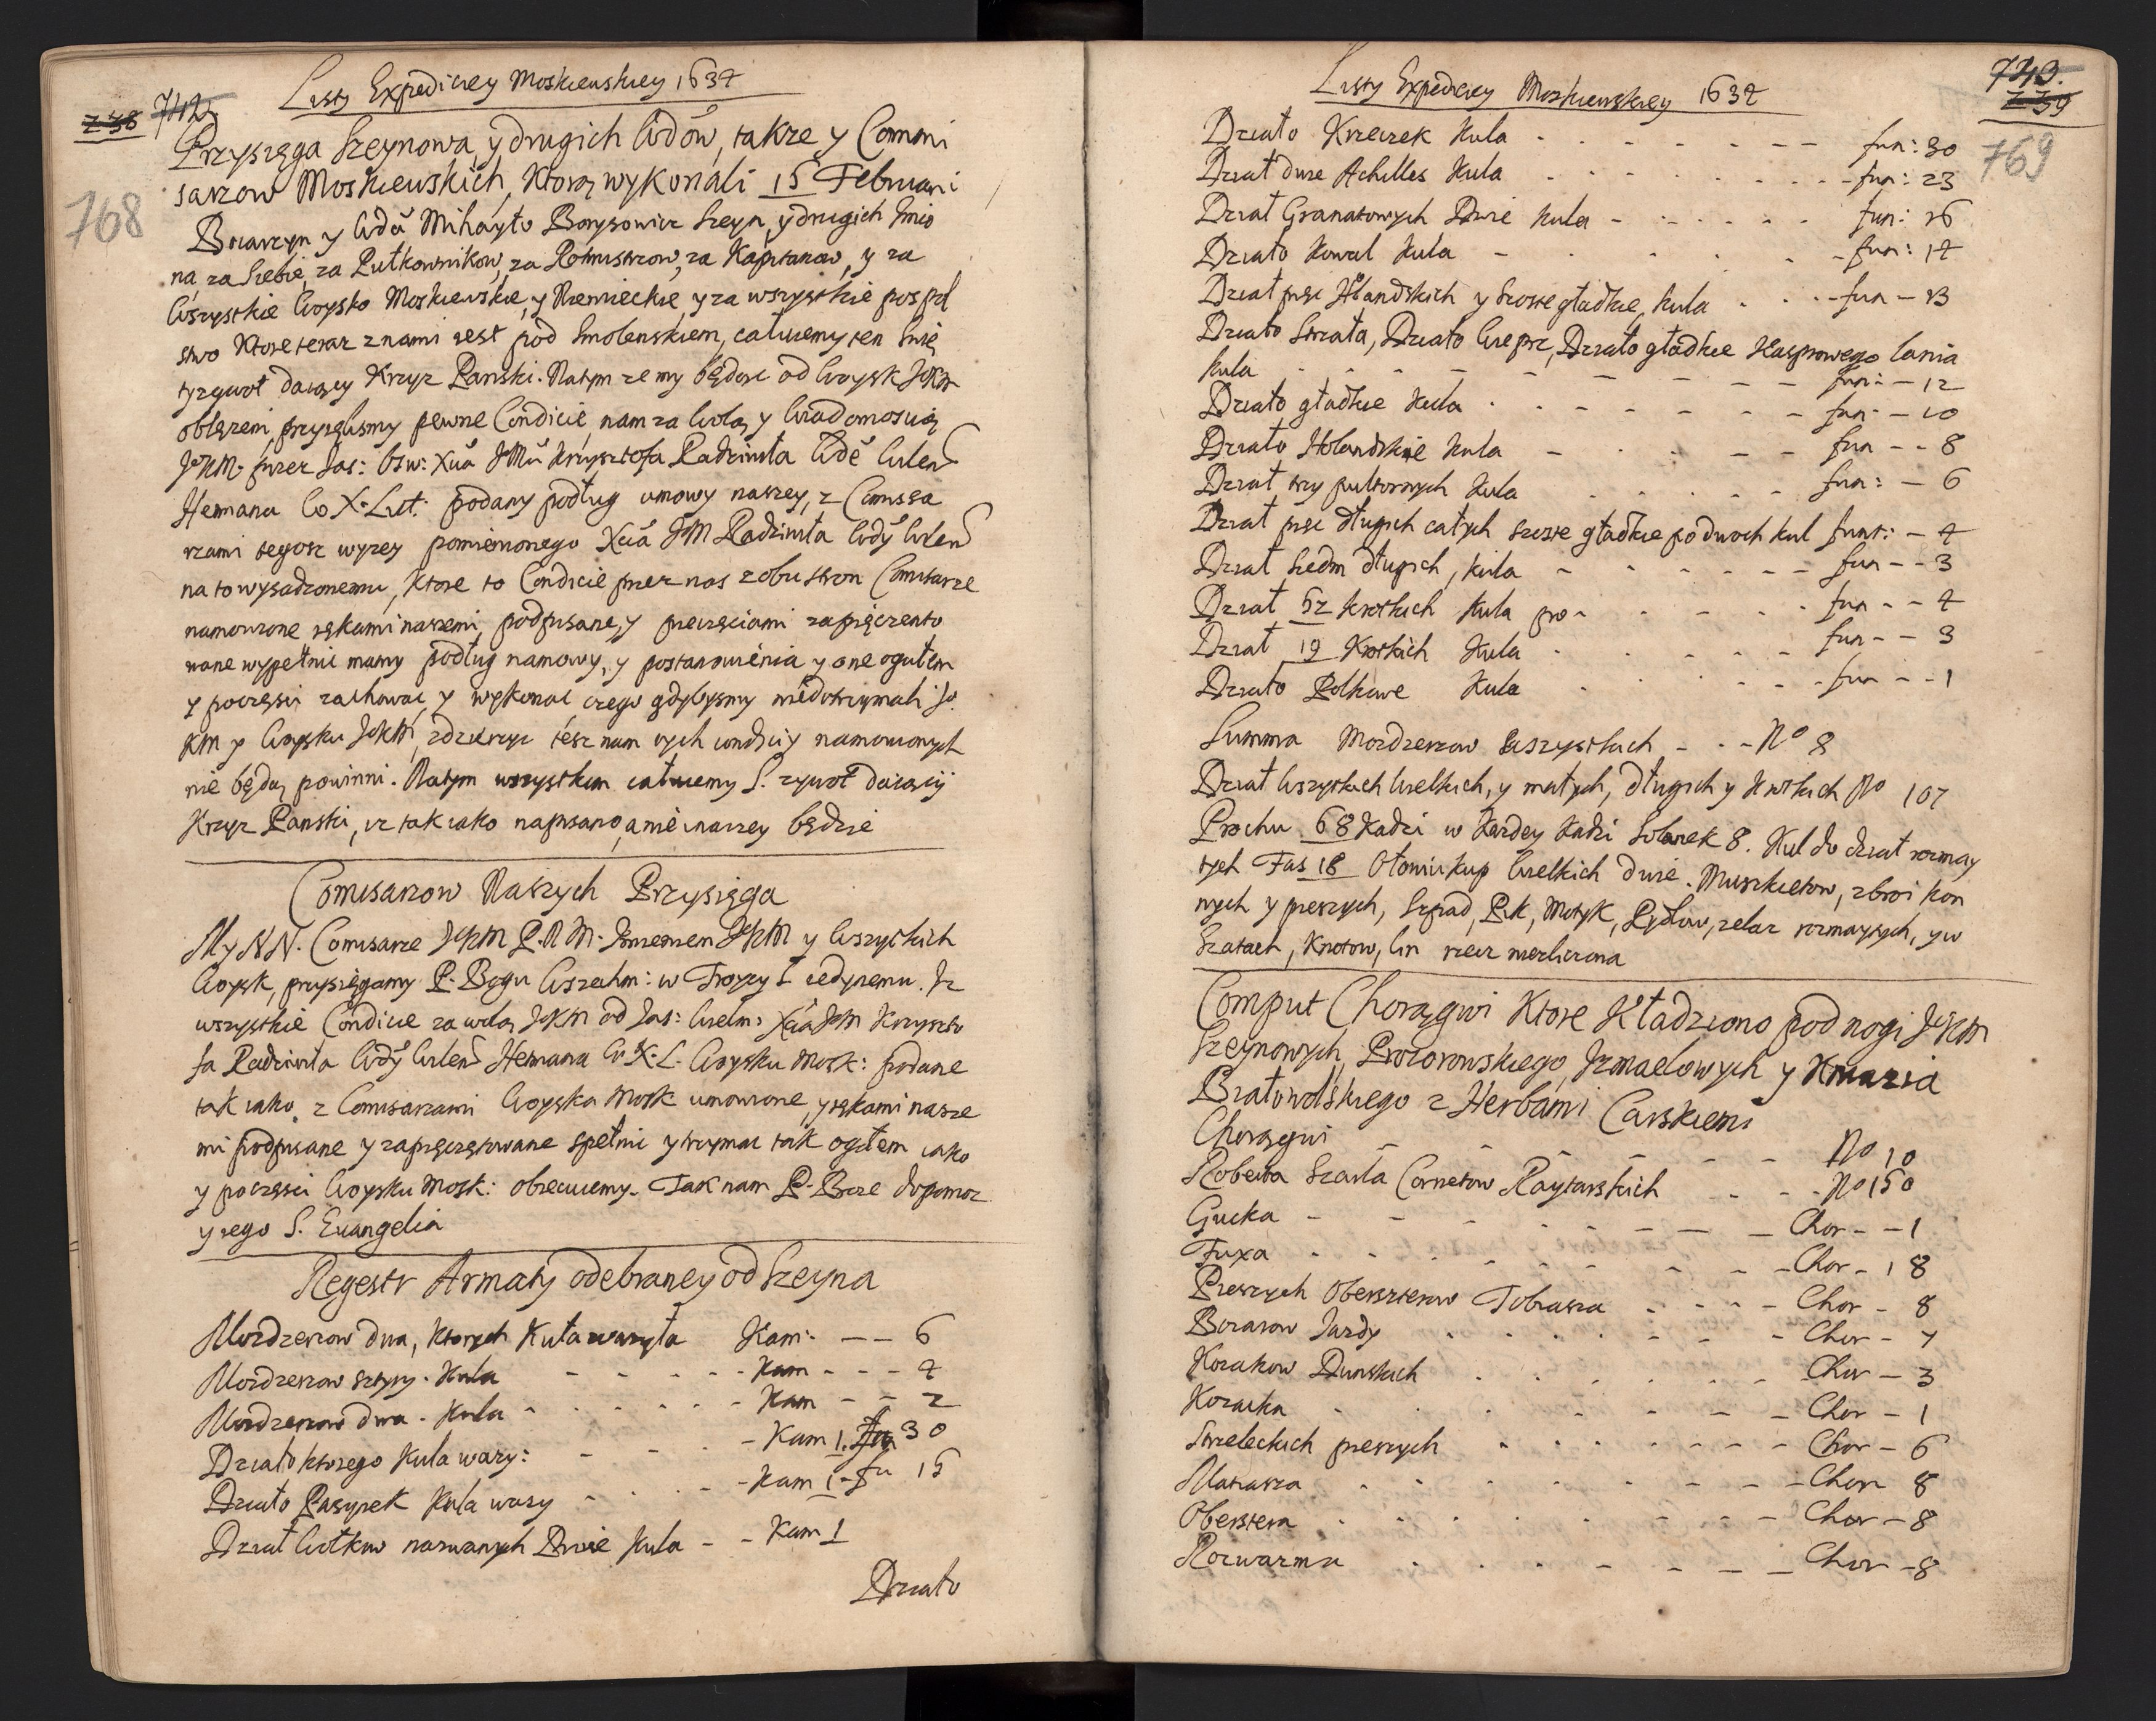 Listy Expediciey Moskiewskiey 1634
238 742
768
Przysięga Szeynowa, y drugich Wdów, takze y Commi
sarzow Moskiewskich, Ktorą wykonali 15 Februari
Boiarzyn y Wdă Mihayło Borysowicz Szeyn, y drugich Imio
na, za Siebie, za Pułkownikow, za Rotmistrzow, za Kapitanow, y za
Wszystkie Woysko Moskiewskie, y Niemieckie, y za wszystkie pospol
stwo Ktore teraz z nami iest pod Smolenskiem, całuiemy ten Swię
ty zywot daiący Krzyz Panski. Na tym ze my będąc od Woysk JKM
oblęzeni przyięlismy pewne Condicie, nam za Wolą y Wiadomoscią
JKM. przez Jas: Osw: Xcia JMci Krzysztofa Radziwiła Wdę Wilen
Hetmana Wo X. Lit: podany podług umowy naszey, z Comissa
rzami tegosz wyzey pomienionego Xcia JM Radziwiła Wdy Wilen
na to wysadzonemu, Ktore to Condicie przez nas z obu stron Comisarze
namowione rękami naszemi, podpisane, y pieczęciami zapięczento
wane wypełnic mamy podług namowy, y postanowienia y one ogułem
y poczęsci zachowac, y wykonac czego gdybysmy niedotrzymali Jo.
KM y Woysku JoKM, zdzierzyc tesz nam tych condiciy namowionych
nie będą powinni. Na tym wszystkim całuiemy S. zywot daiąciy
Krzyz Panski, iz tak iako napisano, a nie inaczey będzie
Comisarzow Naszych Przysięga
My NN. Comisarze JoKM P. N M. Imieniem JoKM y Wszystkich
Woysk, przysięgamy P. Bogu Wszechm: w Troycy S iedynemu. Iz
wszystkie Condicie za wolą JoKM od Jas: Wielm: Xcia JoM Krzyszto
fa Radziwiła Wdy Wilen Hetmana W. X. L. Woysku Mosk: podane
tak iako z Comisarzami Woyska Mosk umowione, y rękami nasze
mi podpisane y zapięczętowane spełnic y trzymac tak ogułem iako
y poczęsci Woysku Mosk: obiecuiemy. Tak nam P. Boze dopomoz
y iego S. Ewangelia
Regestr Armaty odebraney od Szeyna
Mozdzerzow dwa, Ktorych Kula wazyła Kam: -- 6
Mozdzerzow sztyry. Kula - - - - - Kam - - - 4
Mozdzerzow dwa. Kula - - - - - Kam - - 2
Działo ktorego Kula wazy: - - - - Kam 1. fu 30
Działo Pasynek Kula wazy - - - - Kam 1 - fu 15
Dział Wilkow nazwanych Dwie Kula - - Kam 1
Działo
Listy Expediciey Moskiewskiey 1634
743.
239
769
Działo Krzeczek Kula - - - - - - - fun: 30
Dział dwie Achilles Kula - - - - - - - fun: 23
Dział Granatowych Dwie Kula - - - - - - fun: 16
Działo Kowal Kula - - - - - - fun: 14
Dział pięc Hollandskich y Szoste gładkie, Kula - - - fun - 13
Działo Strzała, Działo Wieprz, Działo gładkie Kasprowego lania
Kula - - - - - - - - - fun: - 12
Działo gładkie Kula - - - - - - - fun: - 10
Działo Holandskie Kula - - - - - fun -- 8
Dział trzy pultornych Kula - - - - - fun: - 6
Dział pięc długich całych szoste gładkie po dwoch kul funt: - 4
Dział Siedm długich, Kula - - - - - - fun -- 3
Dział 52 Krotkich Kula po - - - - - fun -- 4
Dział 19 Krotkich Kula - - - - - fun -- 3
Działo Polkowe Kula - - - - - fun -- 1
Summa Mozdzerzow Wszystkich - - - No 8
Dział Wszystkich Wielkich, y małych, długich y Krotkich No 107
Prochu 68 Kadzi w Kazdey Kadzi Solanek 8. Kul do dział rozmay
tych Fas 18 Ołowiu kup Wielkich dwie. Muszkietow, zbroi kon
nych y pieszych, Szpad, Pik, Motyk, Rydlow, zelaz rozmaytych, y w
Sztatach, Knotow, lin rzecz niezliczona
Comput Chorągwi Ktore Kładziono pod nogi JoKM
Szeynowych, Prozorowskiego, Izmaelowych y Kniazia
Białowolskiego z Herbami Carskiemi
Chorągwi - - - - - - - No 10
Roberta Szarla Cornetow Raytarskich - - - No 150
Gucka - - - - - - - - Chor -- 1
Fuxa - - - - - - - - Chor - 18
Pieszych Obersterow Tobiasza - - - - Chor - 8
Boiarow Jazdy - - - - - - - Chor - 7
Kozakow Dunskich - - - - - - Chor - 3
Kozacka - - - - - - - - Chor - 1
Strzeleckich pieszych - - - - - - - Chor - 6
Matiasza - - - - - - - - Chor 8
Oberstera - - - - - - - - Chor - 8
Rozwarma - - - - - - - Chor - 8